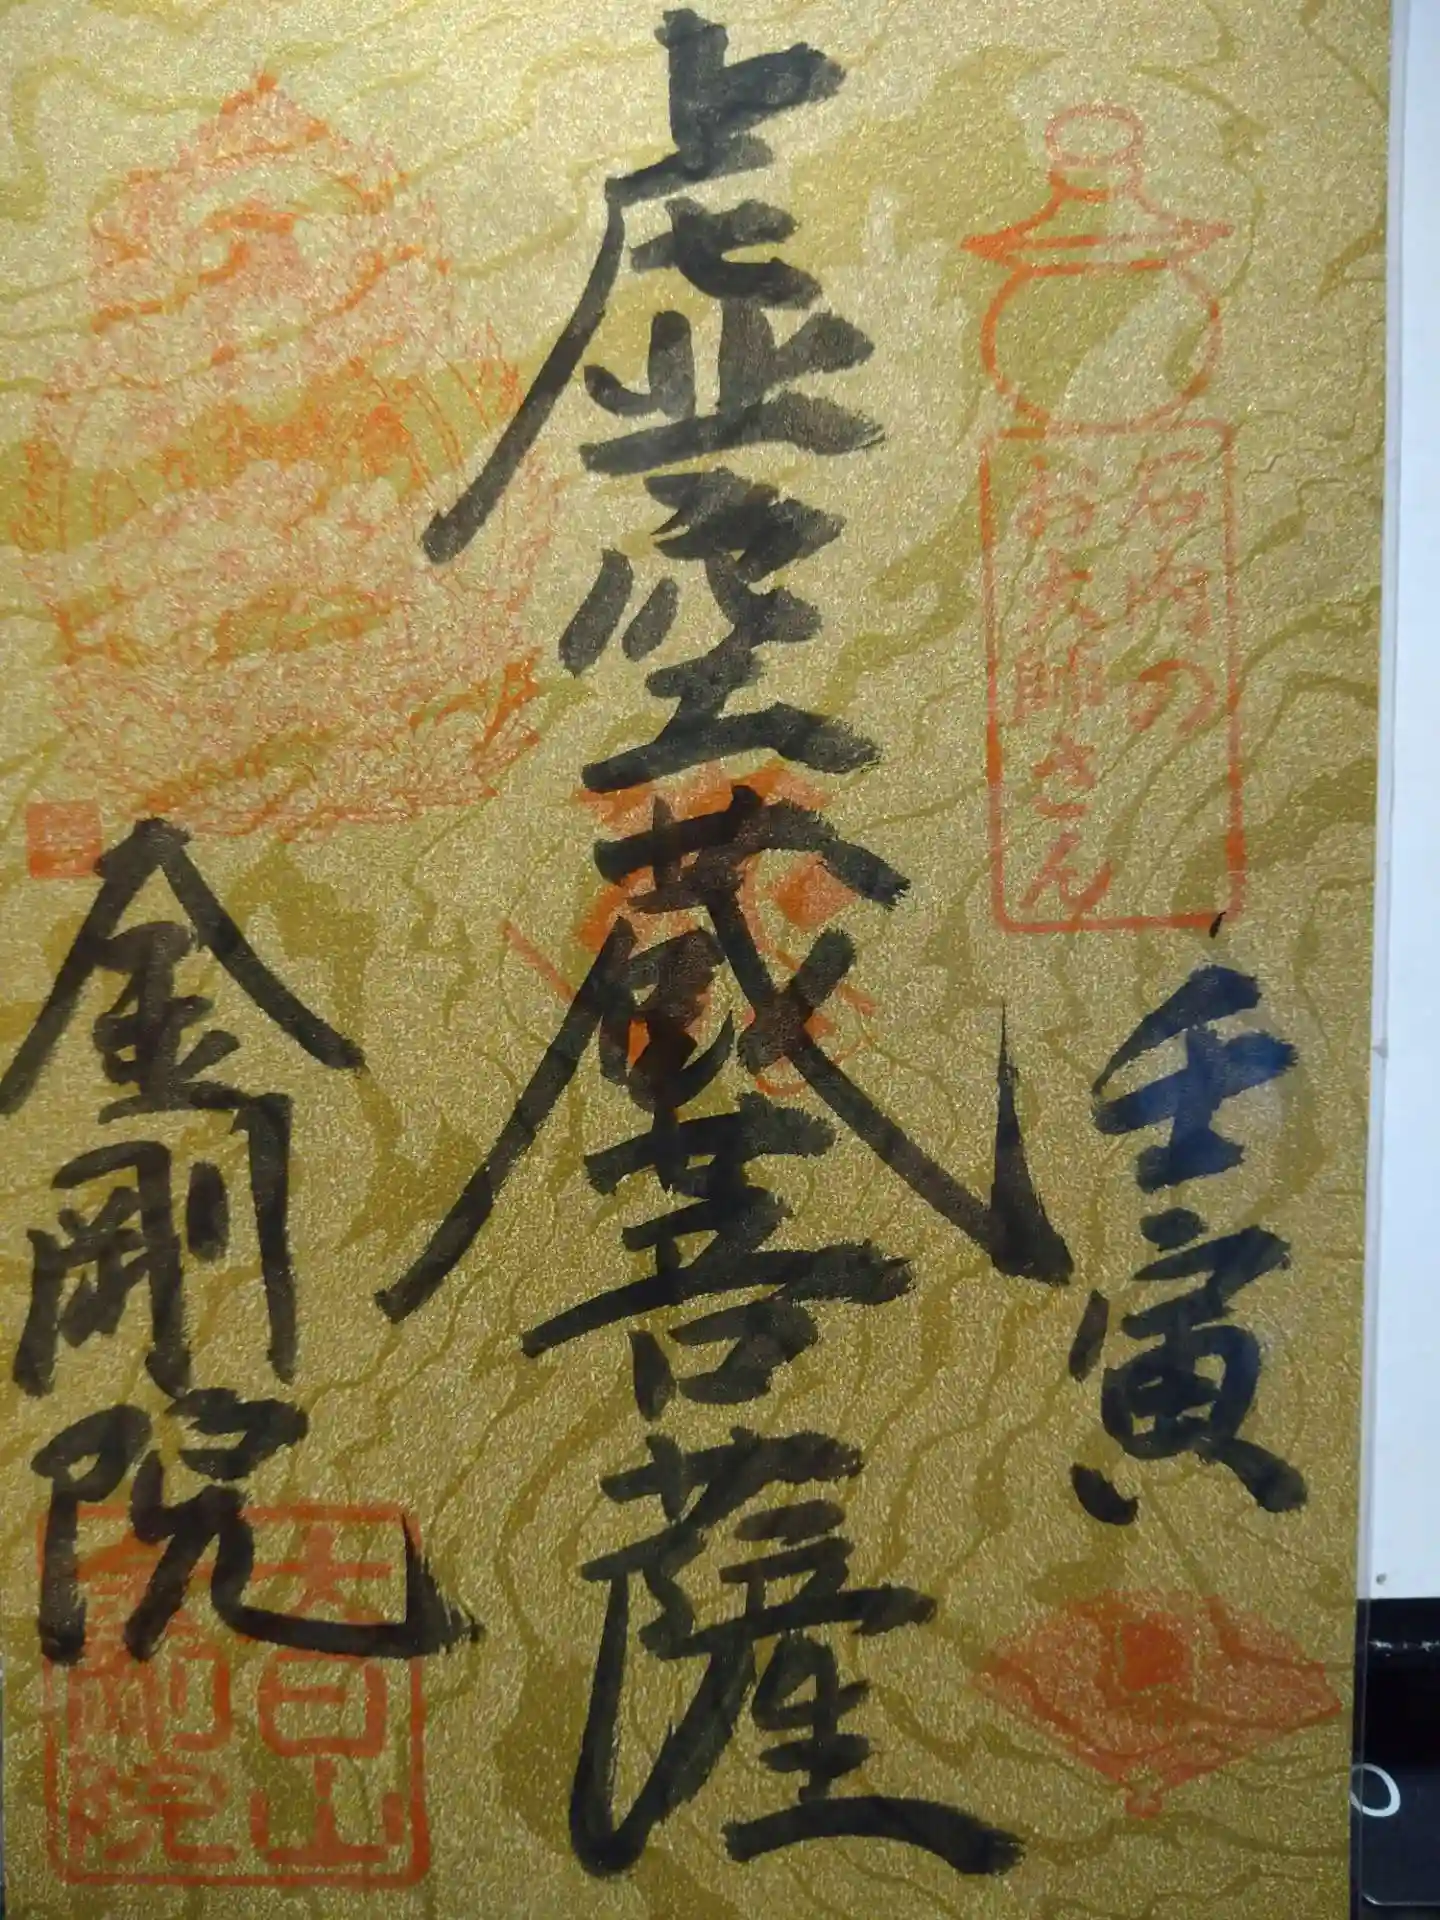 石崎の
お大師さん
壬寅
虚空蔵菩薩
金剛院
大日山
金剛院